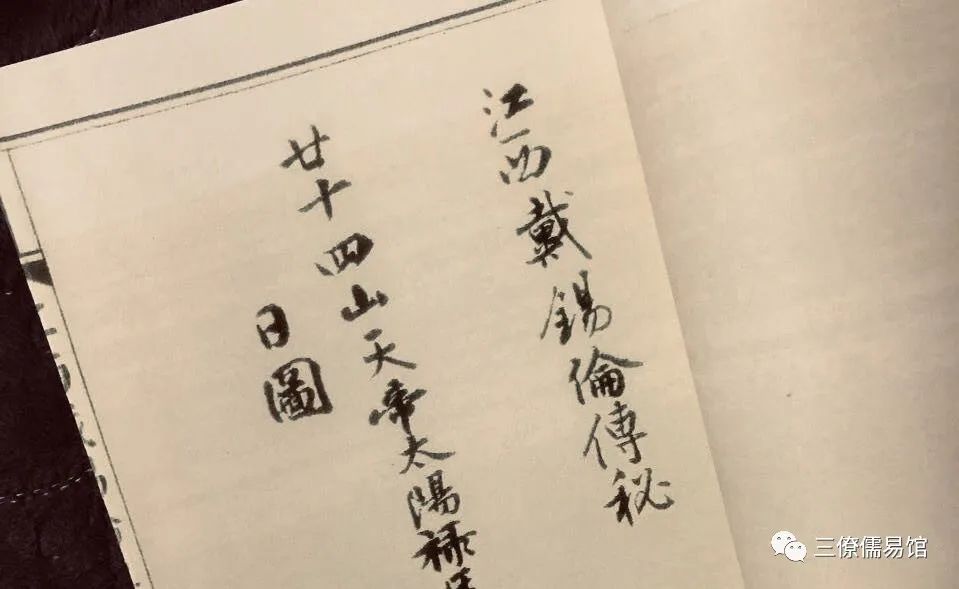 江西戴錫倫傳秘
廿十四山天帝太陽祿
日圖
三僚儒易馆